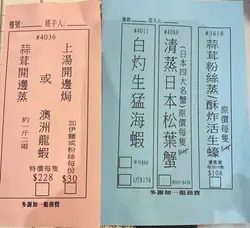 檯號:
經手人:
#4036
上湯開邊焗
加伊麵或粉絲每份$30
或
澳洲龍蝦
蒜茸開邊蒸
約一斤二兩
特價每隻
$228
多謝加一服務費
檯號:
經手人:
#3818
蒜茸粉絲蒸/酥炸活生蠔
原價每隻
$108
#4088
(日本四大名蟹)
清蒸日本松葉蟹
原價每隻
#4011
白灼生猛海蝦
半斤$158
多謝加一服務費